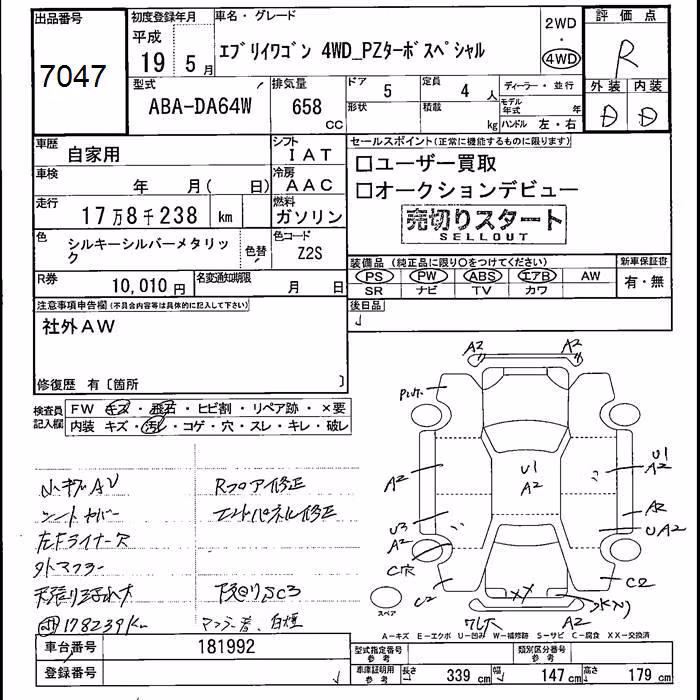 出品番号
7047
初度登録年月
平成
19 5月
車名・グレード
エブリイワゴン 4WD_PZターボスペシャル
2WD
・
4WD
評価点
R
型式
ABA-DA64W
排気量
658
CC
ドア 5
形状
定員 4 人
積載 kg
ディーラー・並行
モデル年式 年
ハンドル 左・右
外装 内装
D D
車歴
自家用
シフト
IAT
車検
年 月( 日)
冷房
AAC
走行
17万8千238 km
燃料
ガソリン
色
シルキーシルバーメタリック
色替
色コード
Z2S
R券
10,010 円
名変通知期限
月 日
セールスポイント(正常に機能するものに限ります)
□ユーザー買取
□オークションデビュー
売切りスタート
SELLOUT
装備品(純正品に限り○をつけてください)
新車保証書
PS PW ABS エアB AW
SR ナビ TV カワ
有・無
注意事項申告欄(不具合内容等は具体的に記入して下さい)
社外AW
修復歴 有〔箇所 〕
後日品
検査員記入欄
FW キズ・飛石・ヒビ割・リペア跡・×要
内装 キズ・汚レ・コゲ・穴・スレ・キレ・破レ
シートカバー
左Fライナー穴
外マフラー
178239Km
Rフロア修正
エンドパネル修正
下廻りSC3
マフラー音、白煙
A2 A2
A2
U1
A2
U1
A2
U3
A2
A2
UA2
C穴
C2
XX
C2
ワレ大
A2
スペア
A-キズ E-エクボ U-凹み W-補修跡 S-サビ C-腐食 XX-交換済
車台番号
181992
登録番号
型式指定番号
参考
類別区分番号
参考
車庫証明用
参考
長さ 339 cm
幅 147 cm
高さ 179 cm